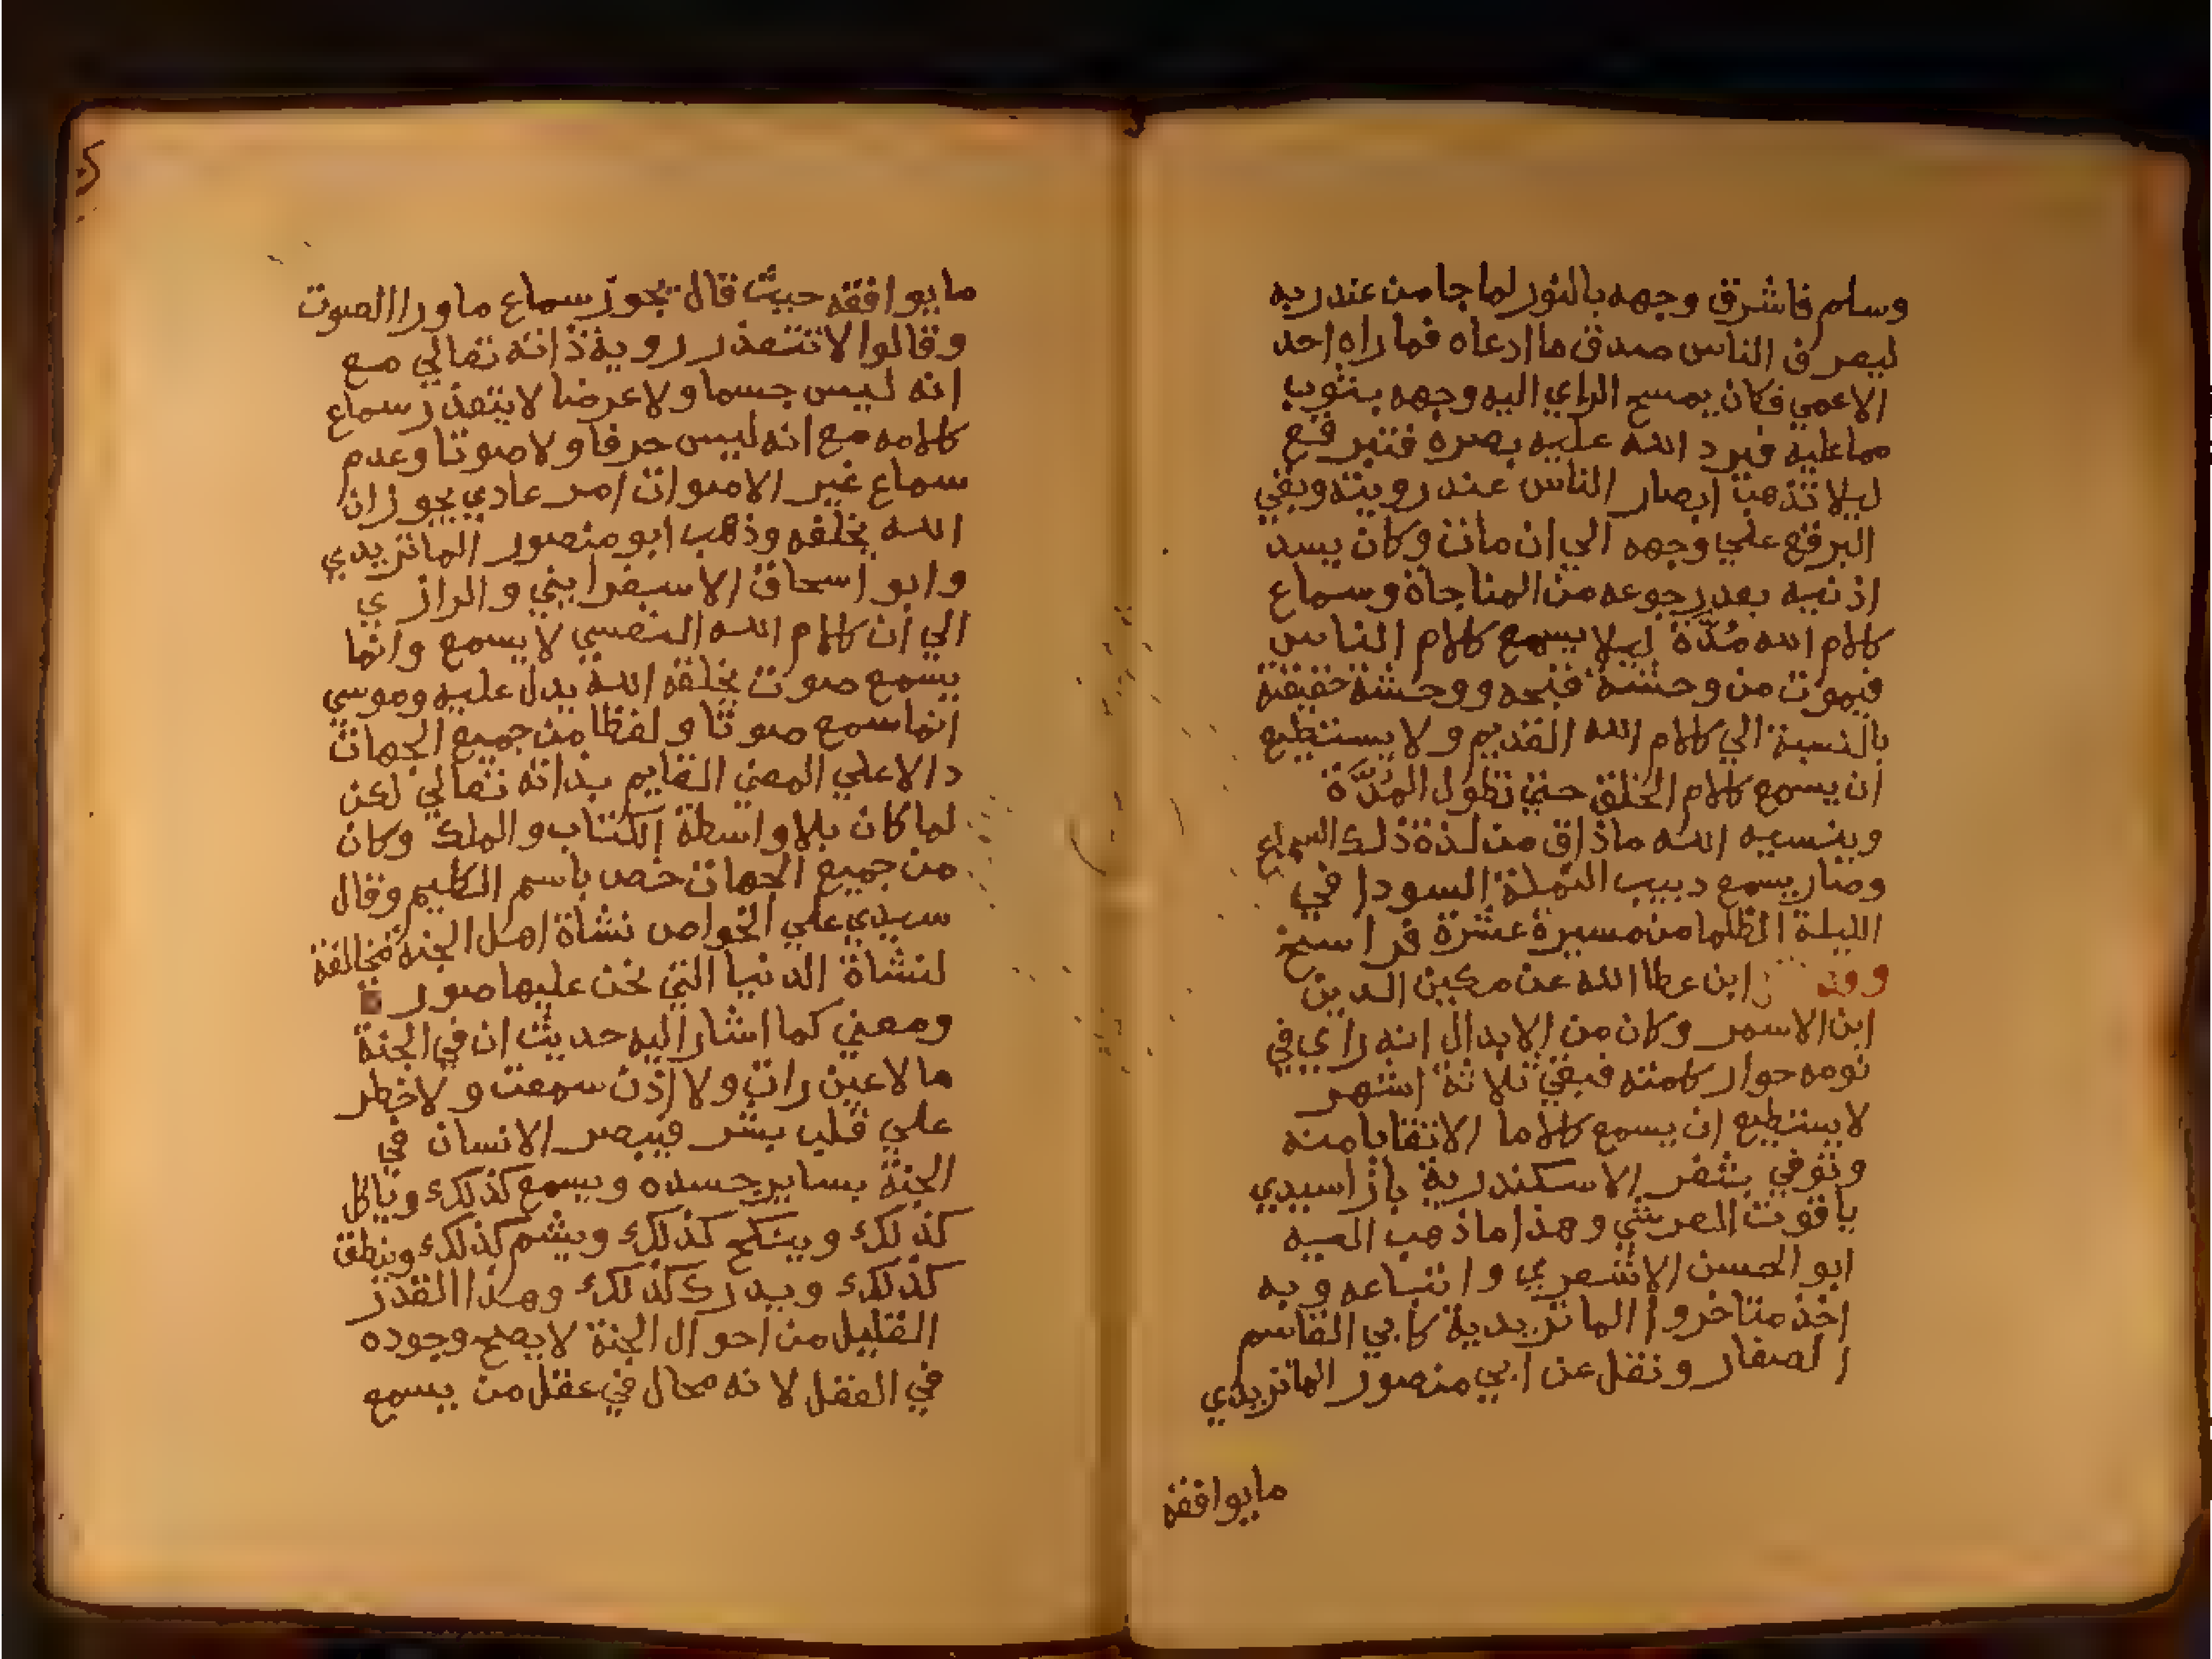 وسلم فاشرق وجهه بالنور لما جا من عند ربه
ليعرف الناس صدق ما ادعاه فما راه احد
الاعمي فكان يمسح الراي اليه وجهه بثوب
مما عليه فيرد الله عليه بصره فتبرقع
ليلا تذهب ابصار الناس عند رويته وبقي
البرقع علي وجهه الي ان مات وكان يسد
اذنيه بعد رجوعه من المناجاة وسماع
كلام الله مُدّة ليلا يسمع كلام الناس
فيموت من وحشة قبحه ووحشة حقيقته
بالنسبة الي كلام الله القديم ولا يستطيع
ان يسمع كلام الخلق حتي تطول المُدَّة
وينسيه الله ما ذاق من لذة ذلك السماع
وصار يسمع دبيب النملة السودا في
الليلة الظلما من مسيرة عشرة فراسخ
ابن عطا الله عن مكين الدين
ابن الاسمر وكان من الابدال انه راي في
نومه حوار كلمته فبقي ثلاثة اشهر
لا يستطيع ان يسمع كلاما الا تقايا منه
وتوفي بثغر الاسكندرية بازا سيدي
ياقوت العرشي وهذا ما ذهب اليه
ابو الحسن الاشعري واتباعه وبه
اخذ متاخروا الماتريدية كابي القاسم
الصفار ونقل عن ابي منصور الماتريدي
مايوافقه
مايوافقه حيث قال يجوز سماع ماورا الصوت
وقالوا لا تتعذر روية ذاته تعالي مع
انه ليس جسما ولا عرضا لا يتعذر سماع
كلامه مع انه ليس حرفا ولا صوتا وعدم
سماع غير الاصوات امر عادي يجوز ان
الله يخلقه وذهب ابو منصور الماتريدي
وابو اسحاق الاسفرايني والرازي
الي ان كلام الله النفسي لا يسمع وانما
يسمع صوت يخلقه الله يدل عليه وموسي
انما سمع صوتا ولفظا من جميع الجهات
دالا علي المعني القايم بذاته تعالي لكن
لما كان بلا واسطة الكتاب والملك وكان
من جميع الجهات خص باسم الكليم وقال
سيدي علي الخواص نشاة اهل الجنة مخالفة
لنشاة الدنيا التي نحن عليها صور
ومعني كما اشار اليه حديث ان في الجنة
ما لا عين رات ولا اذن سمعت ولا خطر
علي قلب بشر فيبصر الانسان في
الجنة بساير جسده ويسمع كذلك وياكل
كذلك وينكح كذلك ويشم كذلك وينطق
كذلك ويدرك كذلك وهذا القدر
القليل من احوال الجنة لا يصح وجوده
في العقل لانه محال في عقل من يسمع